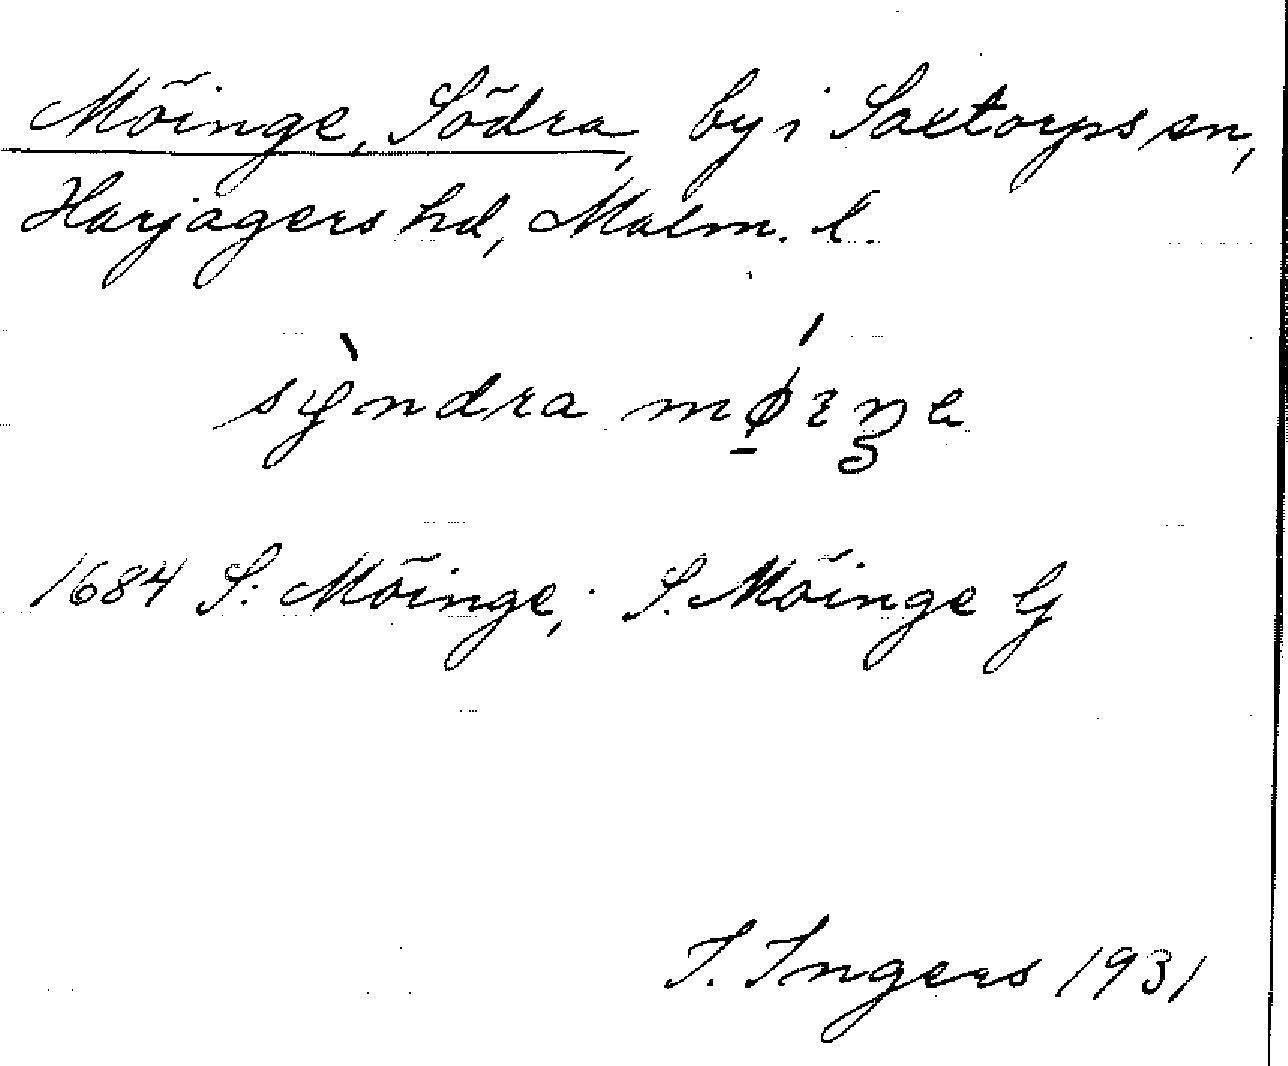 Möinge, Södra, by i Saxtorps sn,
Harjagers hd, Malm. l.
sỳndra mǿiŋe
1684 S: Möinge; S. Möinge G
I. Ingers 1931